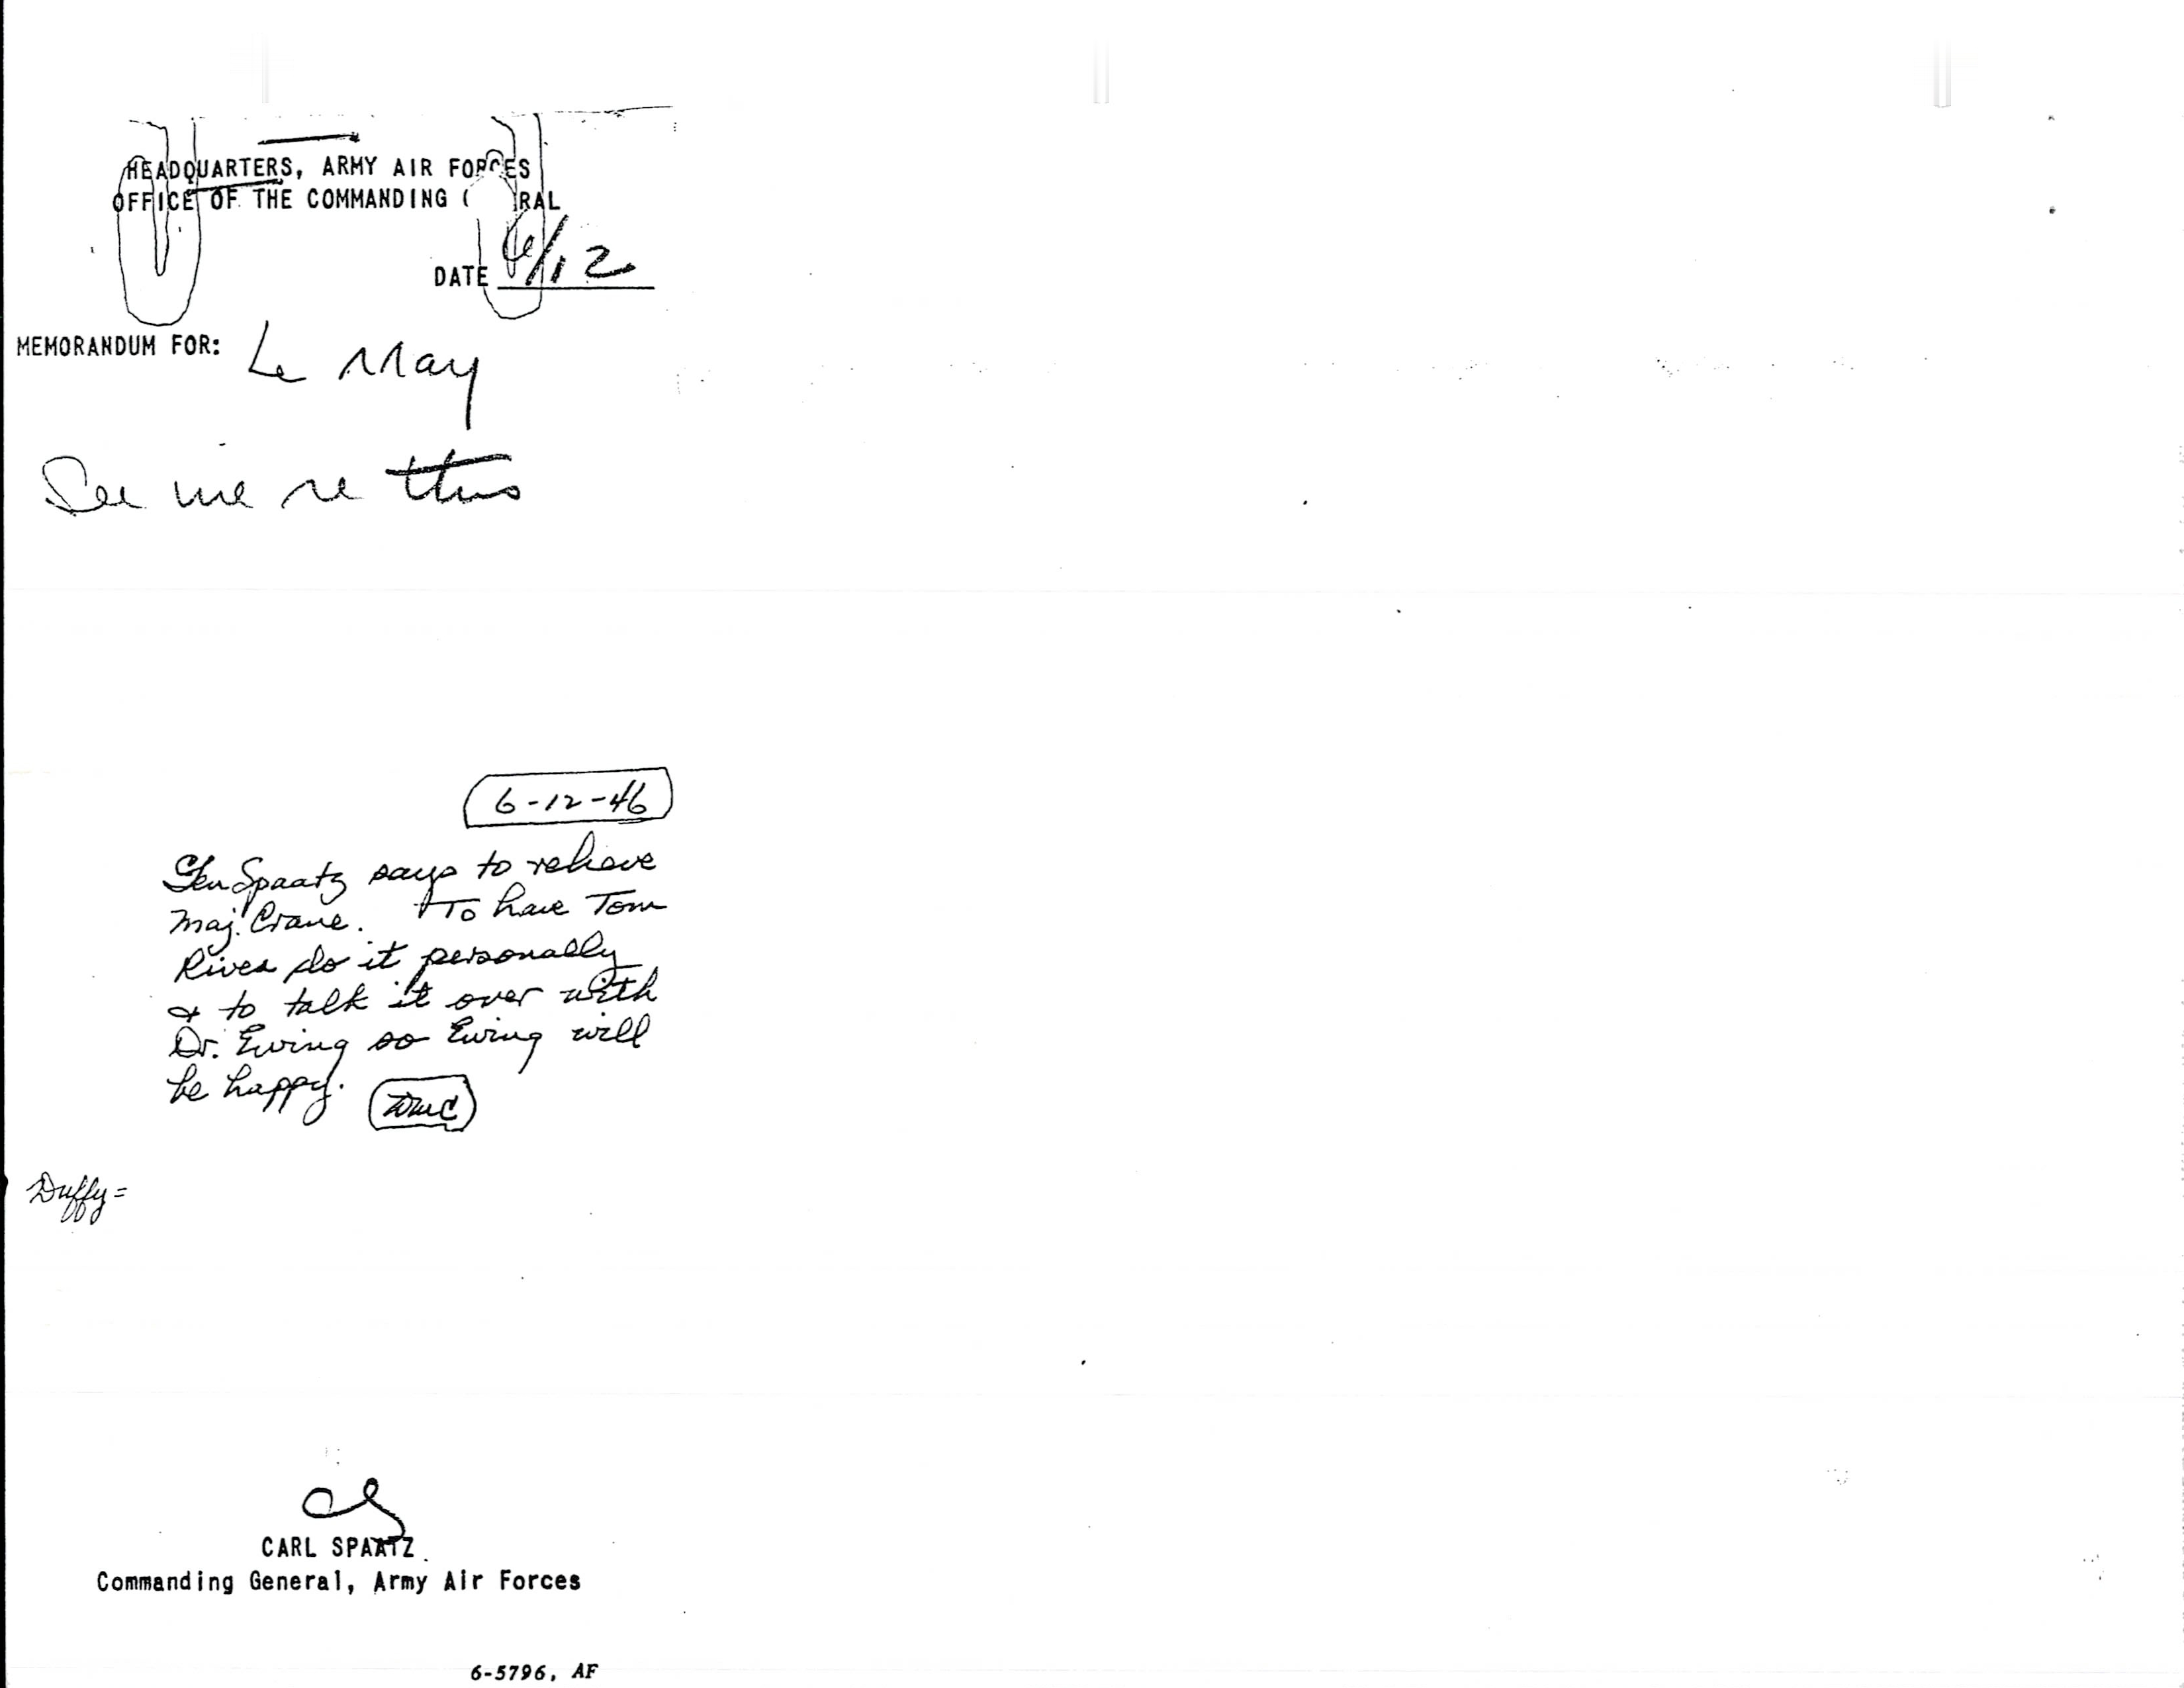 HEADQUARTERS, ARMY AIR FORCES
OFFICE OF THE COMMANDING ( RAL
DATE 6/12
MEMORANDUM FOR: Le May
See me re this
6-12-46
Gen Spaatz says to relieve
Maj. Crane. To have Tom
Rives do it personally
& to talk it over with
Dr. Ewing so Ewing will
be happy.
Duffy=
CARL SPAATZ
Commanding General, Army Air Forces
6-5796, AF